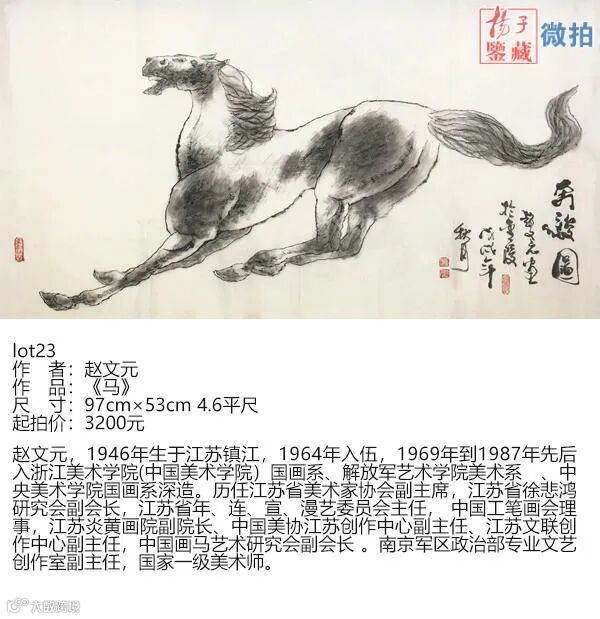 楊子
鑒藏
微拍
奔駿圖
文元画
於金陵
戊戌年
秋月
lot23
作 者：赵文元
作 品：《马》
尺 寸：97cm×53cm 4.6平尺
起拍价：3200元
赵文元，1946年生于江苏镇江，1964年入伍，1969年到1987年先后
入浙江美术学院(中国美术学院）国画系、解放军艺术学院美术系 、中
央美术学院国画系深造。历任江苏省美术家协会副主席，江苏省徐悲鸿
研究会副会长，江苏省年、连、宣、漫艺委员会主任， 中国工笔画会理
事，江苏炎黄画院副院长、中国美协江苏创作中心副主任、江苏文联创
作中心副主任，中国画马艺术研究会副会长 。南京军区政治部专业文艺
创作室副主任，国家一级美术师。
大数跨境